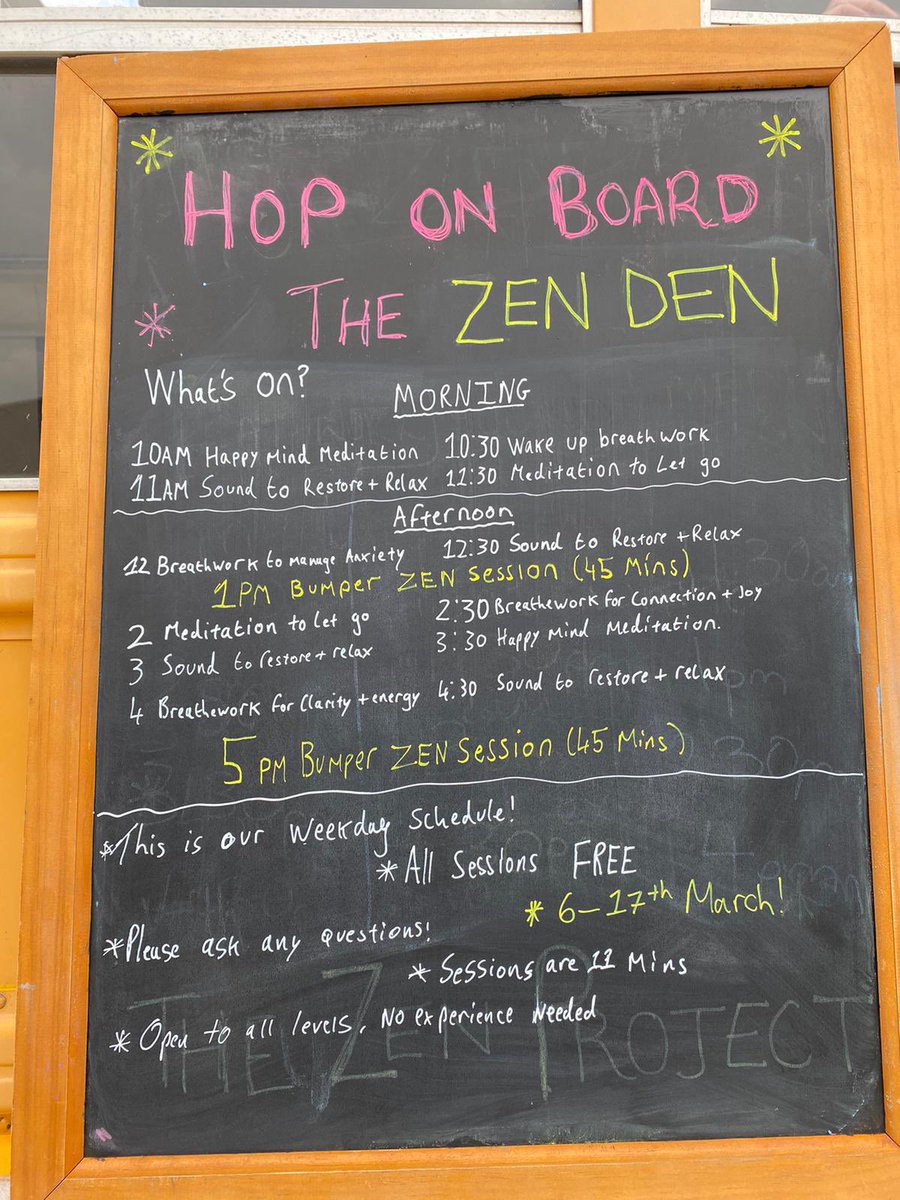 HOP ON BOARD
THE ZEN DEN
What's On?
MORNING
10AM Happy Mind Meditation 10:30 Wake up breathwork
11AM Sound to Restore + Relax 11:30 Meditation to Let go
Afternoon
12 Breathwork to manage Anxiety 12:30 Sound to Restore + Relax
1PM BUMPER ZEN Session (45 Mins)
2 Meditation to let go 2:30 Breathework for Connection + Joy
3 Sound to restore + relax 3:30 Happy Mind Meditation.
4 Breathework for Clarity + energy 4:30 Sound to restore + relax
5 PM BUMPER ZEN Session (45 Mins)
*This is our Weekday Schedule!
*All Sessions FREE
* 6-17th March!
*Please ask any questions!
* Sessions are 11 Mins
* Open to all levels, No experience Needed
THE ZEN PROJECT